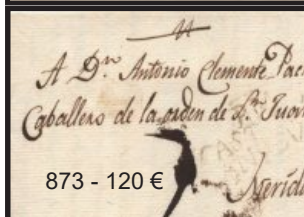 A Dn. Antonio Clemente Pac
Caballero de la orden de Sn. Juan
Merida
873 - 120 €